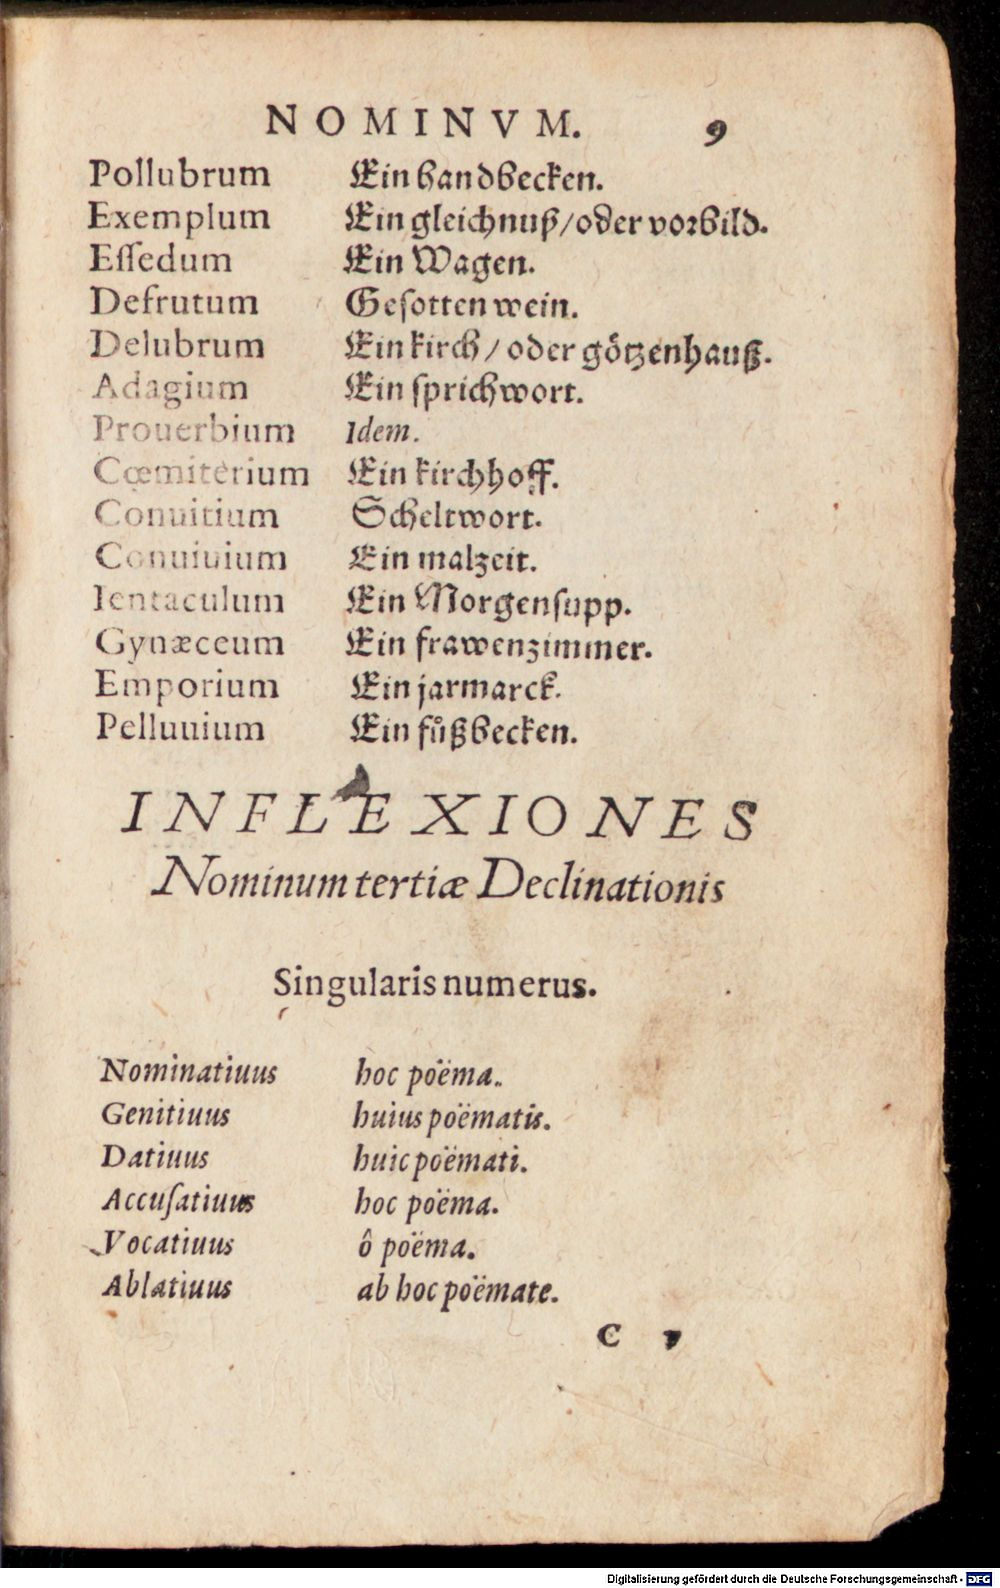 NOMINVM. 9
Pollubrum Ein handbecken.
Exemplum Ein gleichnuß/oder vorbild.
Eſſedum Ein Wagen.
Defrutum Geſotten wein.
Delubrum Ein kirch / oder goͤtzenhauß.
Adagium Ein ſprichwort.
Prouerbium Idem.
Cœmiterium Ein kirchhoff.
Conuitium Scheltwort.
Conuiuium Ein malzeit.
Ientaculum Ein Morgenſupp.
Gynæceum Ein frawenzimmer.
Emporium Ein jarmarck.
Pelluuium Ein fůßbecken.
INFLEXIONES
Nominum tertiæ Declinationis
Singularis numerus.
Nominatiuus hoc poëma.
Genitiuus huius poëmatis.
Datiuus huic poëmati.
Accuſatiuus hoc poëma.
Vocatiuus ô poëma.
Ablatiuus ab hoc poëmate.
C
Digitalisierung gefördert durch die Deutsche Forschungsgemeinschaft - DFG